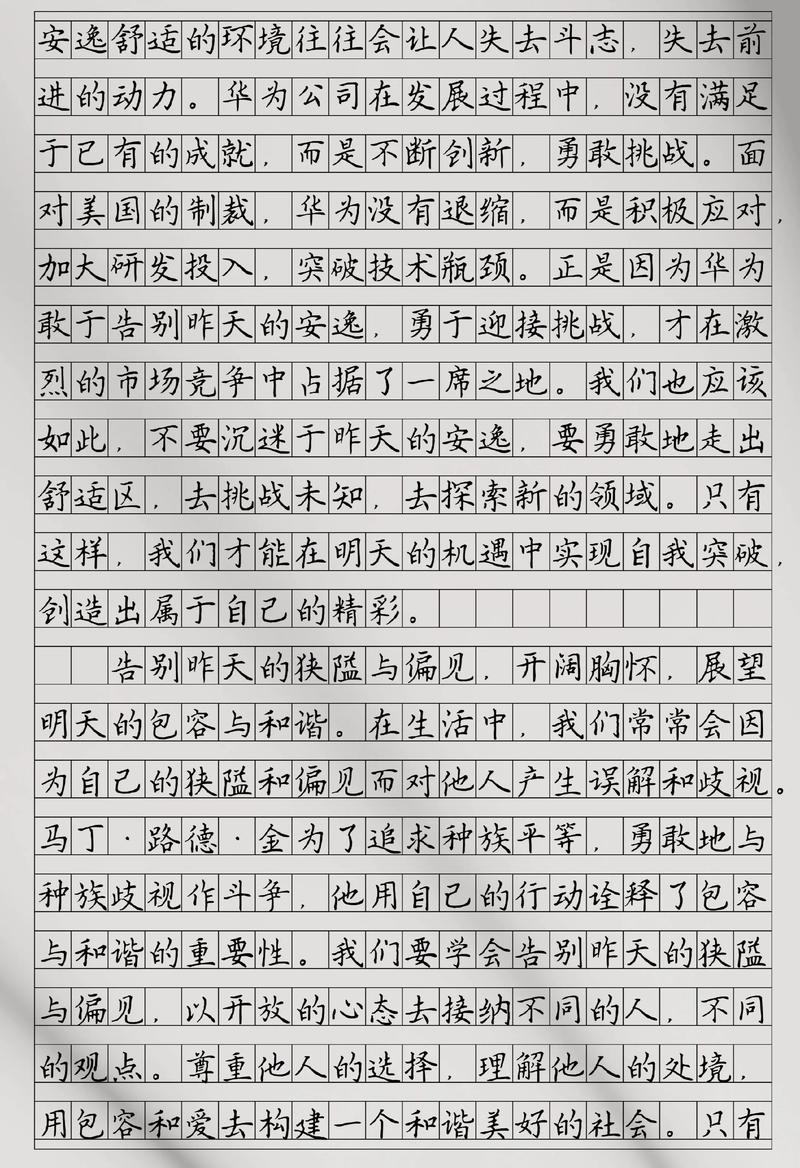 安逸舒适的环境往往会让人失去斗志，失去前
进的动力。华为公司在发展过程中，没有满足
于已有的成就，而是不断创新，勇敢挑战。面
对美国的制裁，华为没有退缩，而是积极应对，
加大研发投入，突破技术瓶颈。正是因为华为
敢于告别昨天的安逸，勇于迎接挑战，才在激
烈的市场竞争中占据了一席之地。我们也应该
如此，不要沉迷于昨天的安逸，要勇敢地走出
舒适区，去挑战未知，去探索新的领域。只有
这样，我们才能在明天的机遇中实现自我突破，
创造出属于自己的精彩。
告别昨天的狭隘与偏见，开阔胸怀，展望
明天的包容与和谐。在生活中，我们常常会因
为自己的狭隘和偏见而对他人产生误解和歧视。
马丁·路德·金为了追求种族平等，勇敢地与
种族歧视作斗争，他用自己的行动诠释了包容
与和谐的重要性。我们要学会告别昨天的狭隘
与偏见，以开放的心态去接纳不同的人，不同
的观点。尊重他人的选择，理解他人的处境，
用包容和爱去构建一个和谐美好的社会。只有